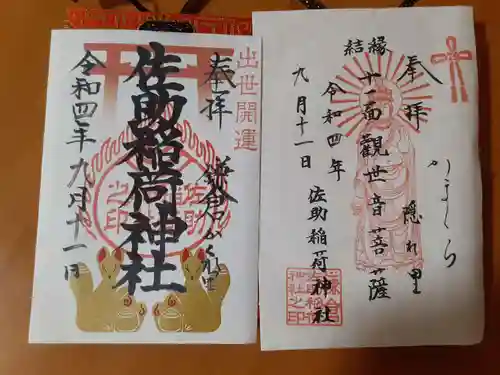 出世開運
奉拝
鎌倉かくれ里
佐助稲荷神社
令和四年九月十一日
佐助
稲荷
之印
奉拝
かまくら
隠れ里
縁結
十一面觀世音菩薩
令和四年
九月十一日
佐助稲荷神社